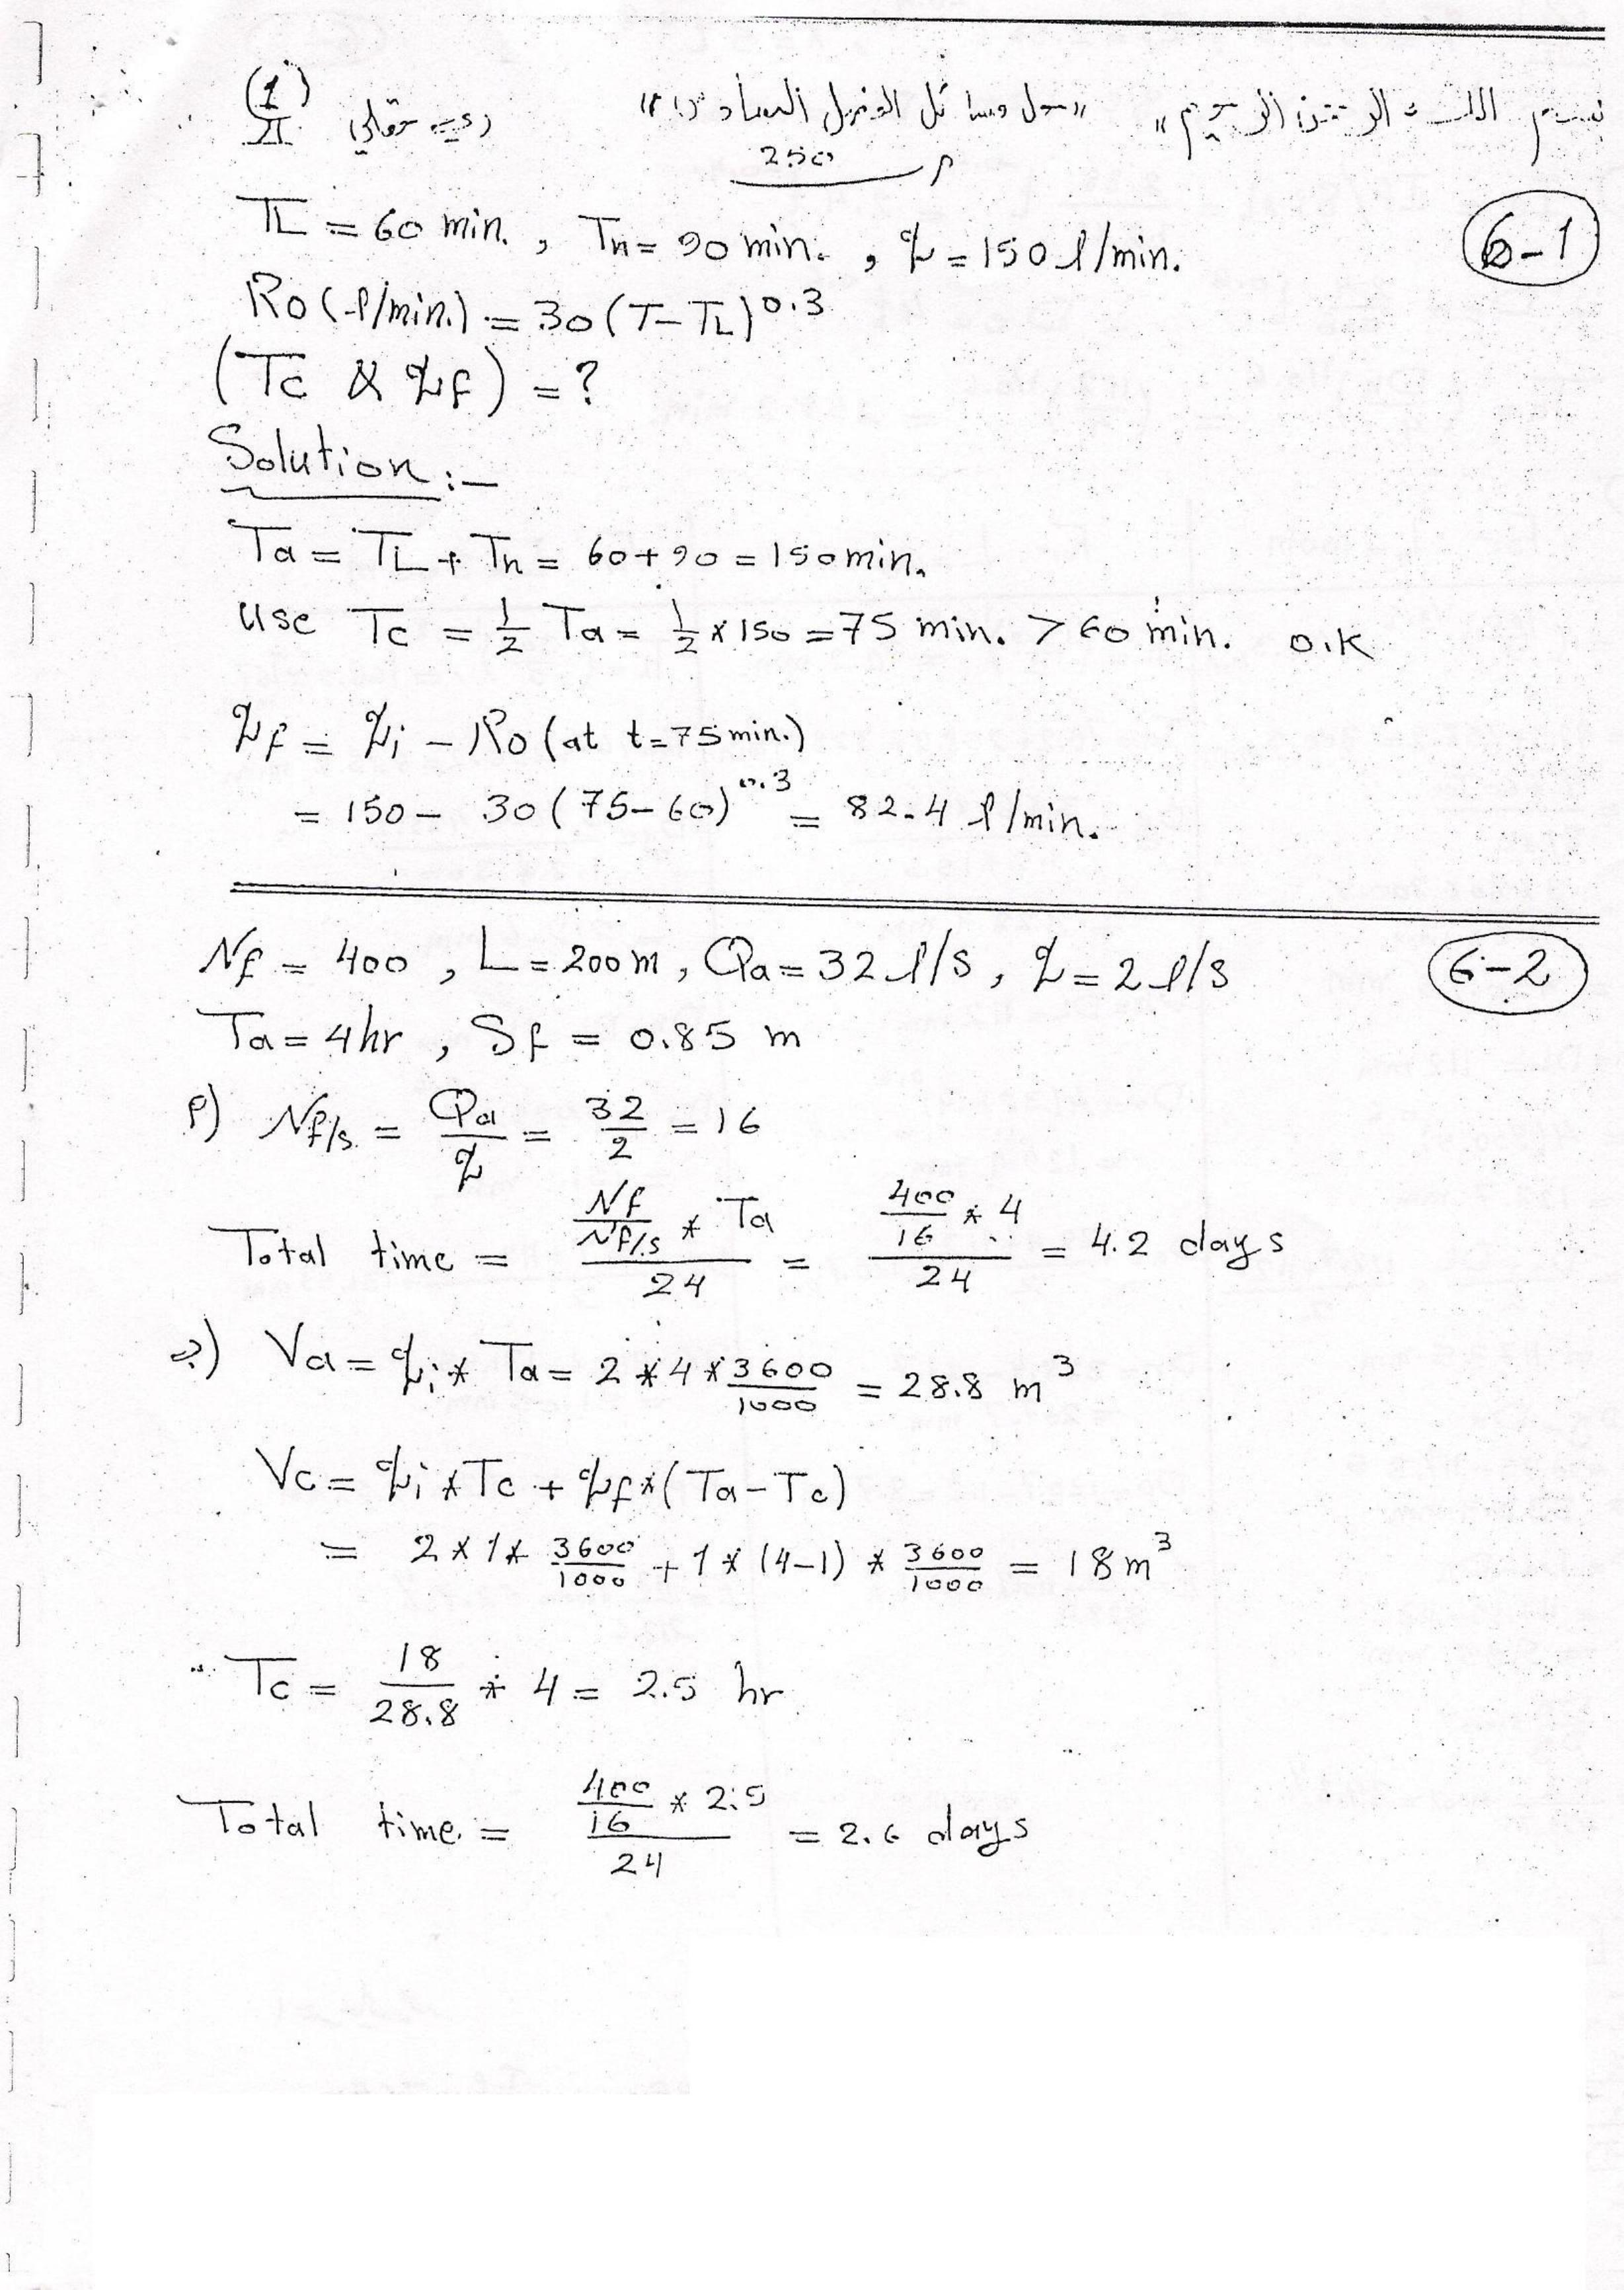 بسم الله الرحمن الرحيم "حل مسائل الفصل السادس" ري حقلي 1/21
250 م
6-1
TL = 60 min. , Tn = 90 min. , q = 150 l/min.
Ro (l/min.) = 30 (T - TL)^0.3
(Tc & qf) = ?
Solution :-
Ta = TL + Tn = 60 + 90 = 150 min.
Use Tc = 1/2 Ta = 1/2 * 150 = 75 min. > 60 min. O.K
qf = qi - Ro (at t = 75 min.)
= 150 - 30 (75 - 60)^0.3 = 82.4 l/min.
6-2
Nf = 400 , L = 200 m , Qa = 32 l/s , q = 2 l/s
Ta = 4 hr , Sf = 0.85 m
أ) Nf/s = Qa/q = 32/2 = 16
Total time = (Nf/Nf/s * Ta)/24 = (400/16 * 4)/24 = 4.2 days
ب) Va = qi * Ta = 2 * 4 * 3600/1000 = 28.8 m³
Vc = qi * Tc + qf * (Ta - Tc)
= 2 * 1 * 3600/1000 + 1 * (4 - 1) * 3600/1000 = 18 m³
Tc = 18/28.8 * 4 = 2.5 hr
Total time = (400/16 * 2.5)/24 = 2.6 days